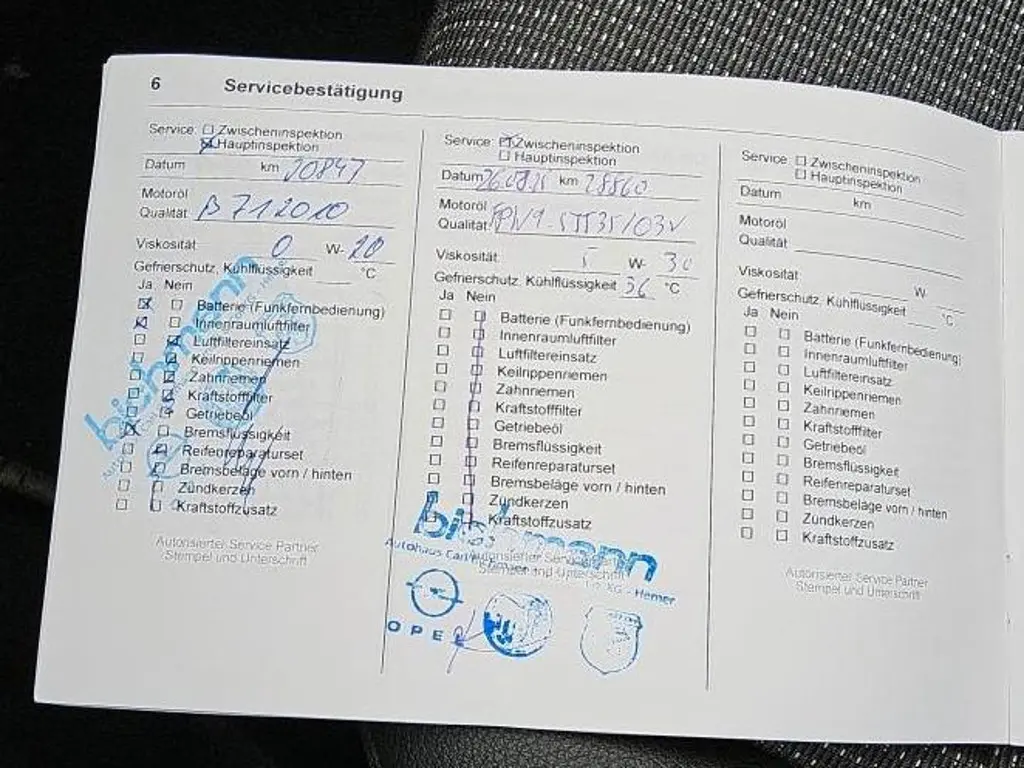 6 Servicebestätigung
Service: ☐ Zwischeninspektion
☒ Hauptinspektion
Datum km 20847
Motoröl
Qualität B712010
Viskosität 0 W- 20
Gefrierschutz, Kühlflüssigkeit °C
Ja Nein
☒ ☐ Batterie (Funkfernbedienung)
☒ ☐ Innenraumluftfilter
☐ ☒ Luftfiltereinsatz
☐ ☒ Keilrippenriemen
☐ ☒ Zahnriemen
☐ ☒ Kraftstofffilter
☐ ☒ Getriebeöl
☒ ☐ Bremsflüssigkeit
☐ ☐ Reifenreparaturset
☐ ☐ Bremsbeläge vorn / hinten
☐ ☐ Zündkerzen
☐ ☐ Kraftstoffzusatz
Autorisierter Service Partner
Stempel und Unterschrift
Service: ☒ Zwischeninspektion
☐ Hauptinspektion
Datum km 28860
Motoröl
Qualität:
Viskosität 5 W- 30
Gefrierschutz, Kühlflüssigkeit 36 °C
Ja Nein
☐ ☐ Batterie (Funkfernbedienung)
☐ ☐ Innenraumluftfilter
☐ ☐ Luftfiltereinsatz
☐ ☐ Keilrippenriemen
☐ ☐ Zahnriemen
☐ ☐ Kraftstofffilter
☐ ☐ Getriebeöl
☐ ☐ Bremsflüssigkeit
☐ ☐ Reifenreparaturset
☐ ☐ Bremsbeläge vorn / hinten
☐ ☐ Zündkerzen
☐ ☐ Kraftstoffzusatz
Autorisierter Service
Stempel und Unterschrift
Autohaus Carl KG - Hemer
OPEL
Service: ☐ Zwischeninspektion
☐ Hauptinspektion
Datum km
Motoröl
Qualität
Viskosität W-
Gefrierschutz, Kühlflüssigkeit °C
Ja Nein
☐ ☐ Batterie (Funkfernbedienung)
☐ ☐ Innenraumluftfilter
☐ ☐ Luftfiltereinsatz
☐ ☐ Keilrippenriemen
☐ ☐ Zahnriemen
☐ ☐ Kraftstofffilter
☐ ☐ Getriebeöl
☐ ☐ Bremsflüssigkeit
☐ ☐ Reifenreparaturset
☐ ☐ Bremsbeläge vorn / hinten
☐ ☐ Zündkerzen
☐ ☐ Kraftstoffzusatz
Autorisierter Service Partner
Stempel und Unterschrift